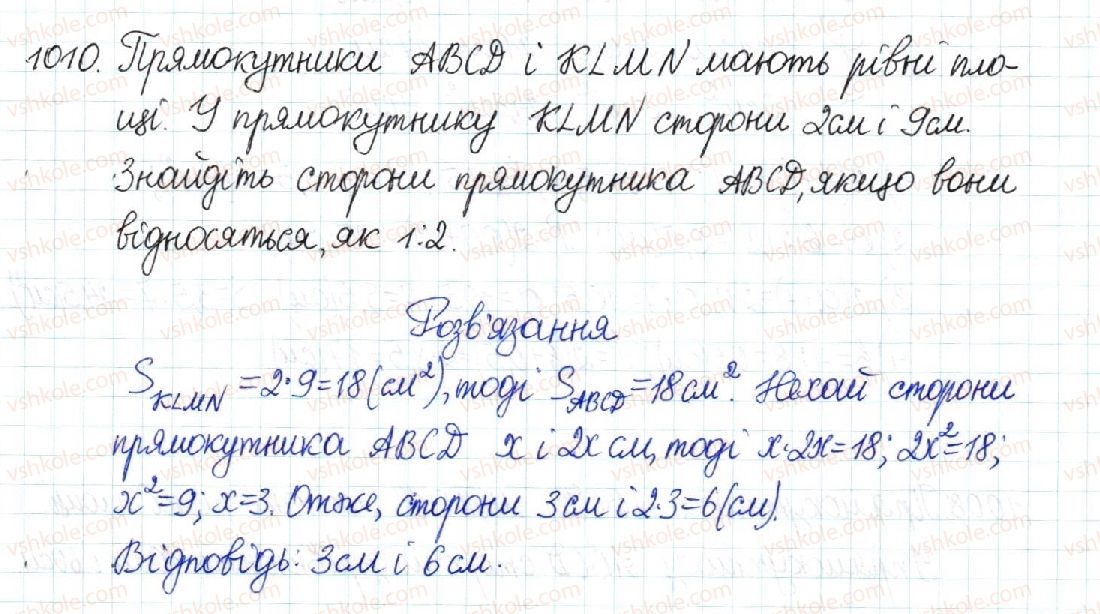 1010. Прямокутники ABCD і KLMN мають рівні пло-
щі. У прямокутнику KLMN сторони 2см і 9см.
Знайдіть сторони прямокутника ABCD, якщо вони
відносяться, як 1:2.
Розв'язання
S_KLMN = 2·9=18(см²), тоді S_ABCD=18см². Нехай сторони
прямокутника ABCD x і 2x см, тоді x·2x=18; 2x²=18;
x²=9; x=3. Отже, сторони 3см і 2·3=6(см).
Відповідь: 3см і 6см.